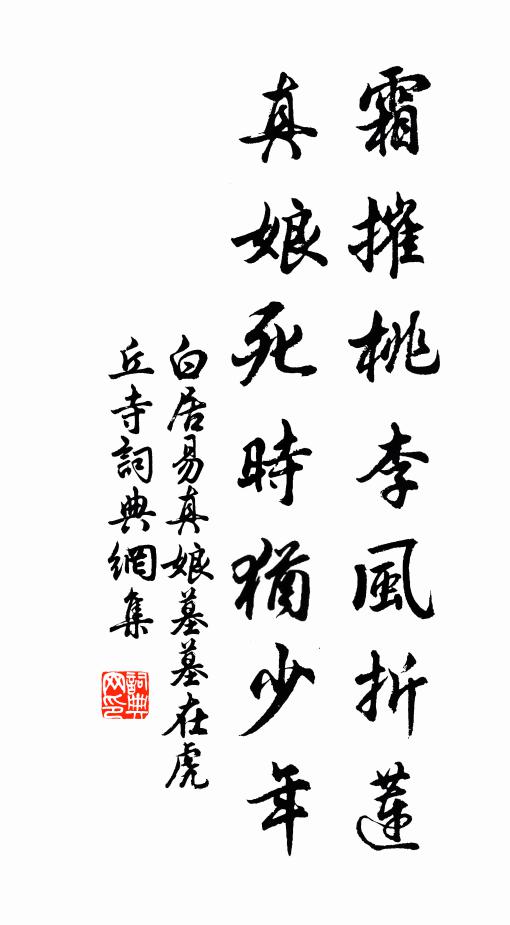 霜摧桃李風折蓮
真娘死時猶少年
白居易真娘墓墓在虎
丘寺詞典網集
詞典网印